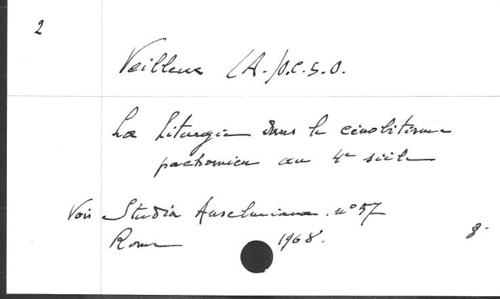 2
Veilleux (A.) O.C.S.O.
La Liturgie dans le cénobitisme
pachomien au 4e siècle
Voir Studia Anselmiana. n° 57
Rome 1968.
8.